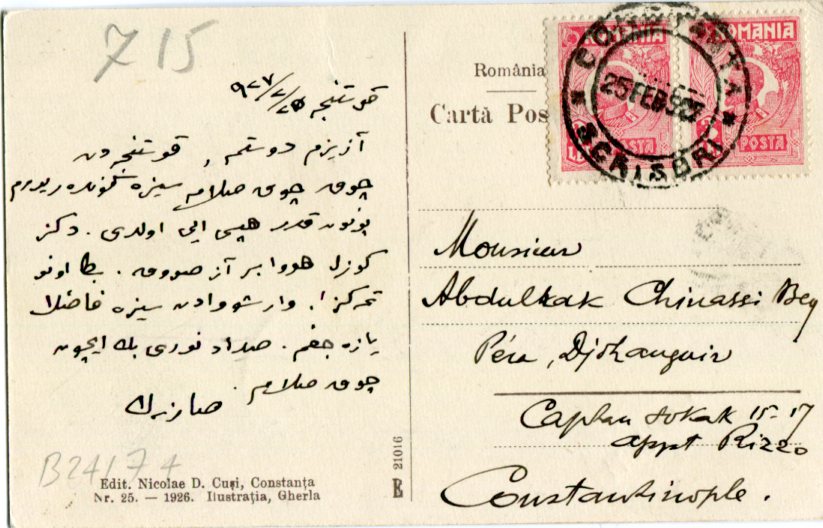 715
قوستنجه ٩٢٧/٢/٢٥
آزیزم دوستم , قوستنجه دن
چوق چوق صلام سیزه گوندەریورم
بونون قدر هپسی ایی اولدی . دکز
کوزل هووا بر آز صووق . بكا اونو
. وارشووادن سیزه فاضلا
یازه جغم . نوری بك ایچون
چوق صلام .
B24174
Edit. Nicolae D. Cuși, Constanța
Nr. 25. — 1926. Ilustrația, Gherla
21016
România
Cartă Pos
ROMANIA
POSTA
ROMANIA
POSTA
CONSTANTA
25 FEB 927
SCRISORI
Monsieur
Abdulhak Chinassi Bey
Péra, Djihanguir
Caplan Sokak 15-17
appt Rizzo
Constantinople.